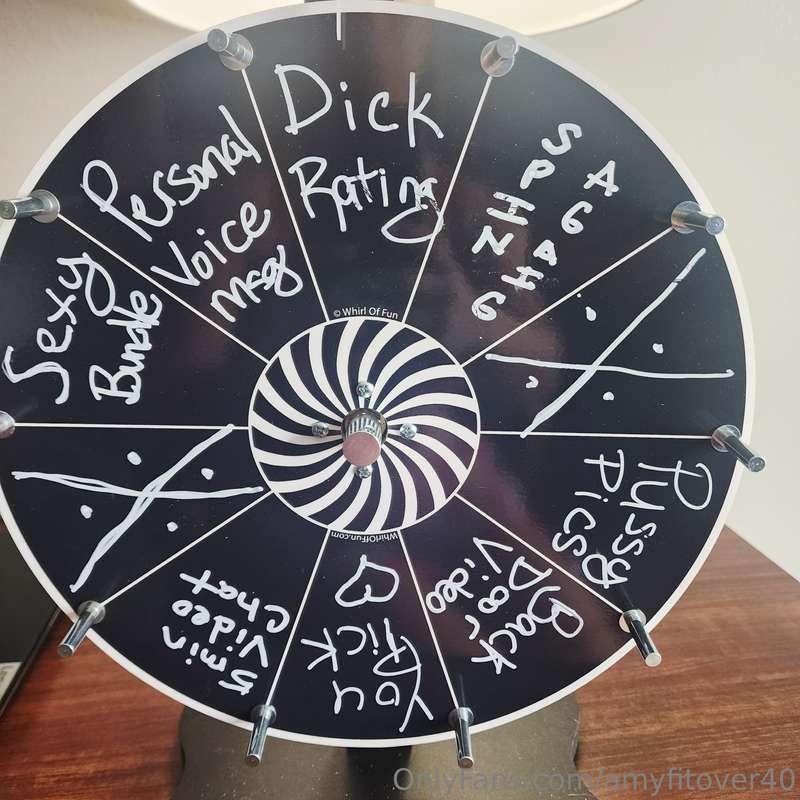 Dick
Rating
SPIN
AGAIN
G
Pussy
Pics
Back
Door
Video
You
Pick
5 min
Video
Chat
Sexy
Bundle
Personal
Voice
Msg
© Whirl Of Fun
WhirlOfFun.com
OnlyFans.com/amyfitover40